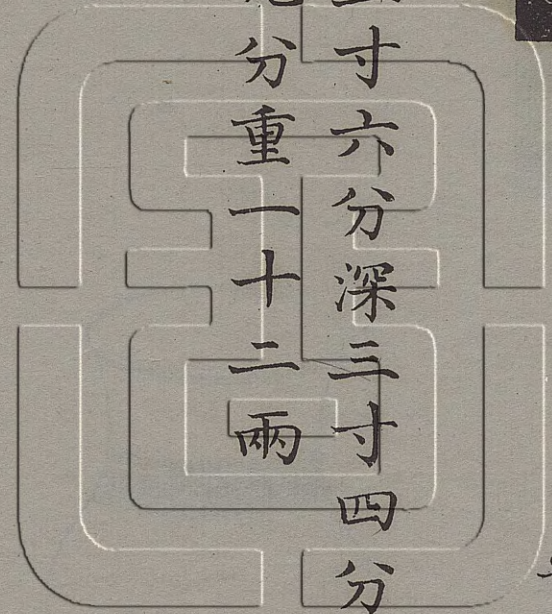 寸六分深三寸四分
分重一十二兩